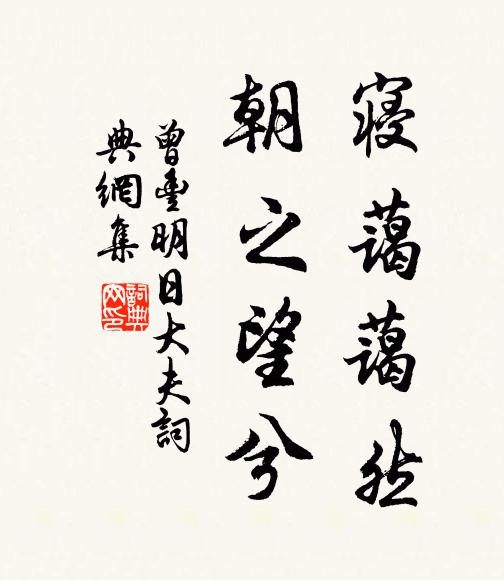 寝藹藹然
朝之望兮
曾豐明日大夫詞
典網集
詞典網印